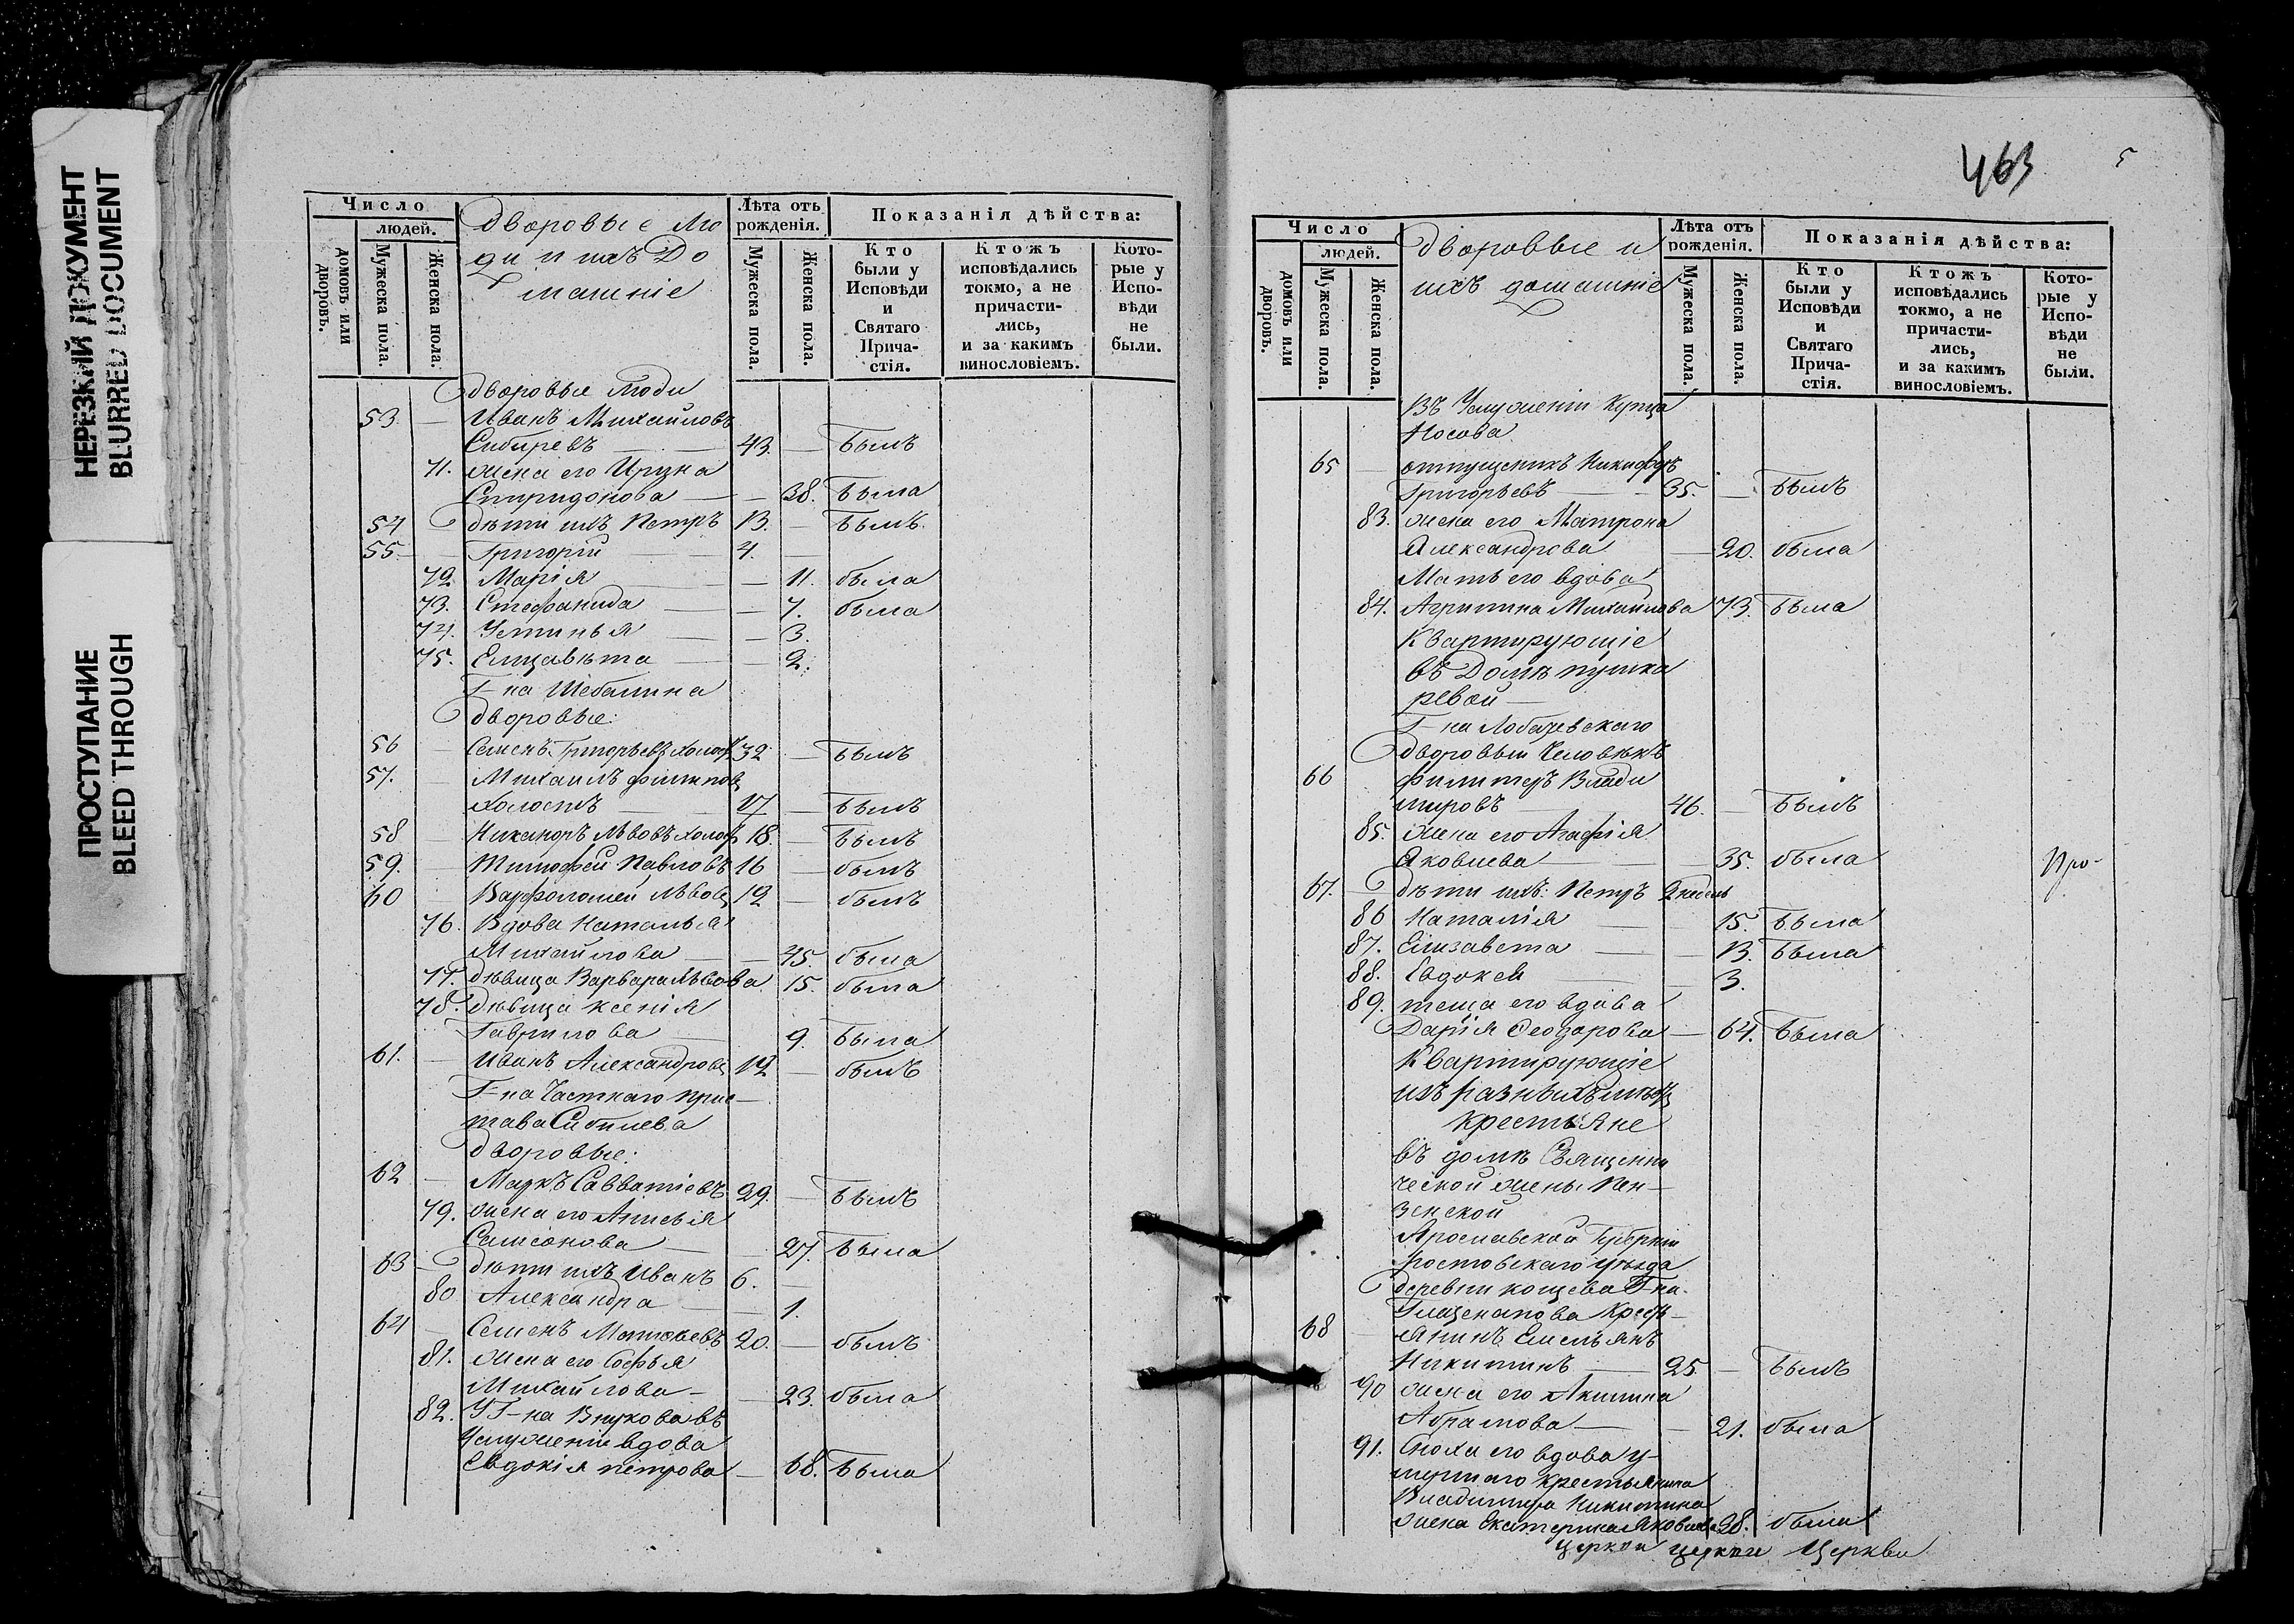 НЕРЕЗКИЙ ДОКУМЕНТ
BLURRED DOCUMENT
ПРОСТУПАНИЕ
BLEED THROUGH
Число
людей.
домовъ или дворовъ.
Мужеска пола.
Женска пола.
Дворовые Лю
ди и ихъ До
машніе
Лѣта отъ рожденія.
Мужеска пола.
Женска пола.
Показанія дѣйства:
Кто были у Исповѣди и Святаго Прича-стія.
Ктожъ исповѣдались токмо, а не причасти-лись, и за какимъ винословіемъ.
Кото-рые у Испо-вѣди не были.
Дворовые Люди
53. — Иванъ Михайловъ
Сибиревъ — 43. — былъ
71. жена его Ирина
Спиридонова — — 38. была
54 — дѣти ихъ Петръ 13. — былъ
55. — Григорій — 4. —
72. Марія — — 11. была
73. Стефанида — — 7. была
74. Устинья — — 3.
75. Елизавѣта — — 2.
Г-на Шебалина
Дворовые:
56 — Семенъ Григорьевъ холост 32 — былъ
57. — Михаилъ Филипповъ
холостъ — 17 — былъ
58 — Никаноръ Львовъ холост 18. — былъ
59. — Тимофей Павловъ 16 — былъ
60 — Варфоломей Львовъ 12 — былъ
76. Вдова Наталья
Михайлова — — 45 была
77. дѣвица Варвара Львова 15. была
78. дѣвица Ксенія
Гаврилова — 9. была
61. — Иванъ Александровъ 12 — былъ
Г-на Частнаго прис-
тава
Дворовые:
62 — Маркъ Савватіевъ 29. — былъ
79. жена его Анисья
Самсонова — — 27. была
63 — дѣти ихъ Иванъ 6. —
80 Александра — — 1.
64 — Семенъ Матвѣевъ 20. — былъ
81. жена его Софья
Михайлова — — 23. была
82. У Г-на Внукова въ
Услуженіи вдова
Евдокія Петрова — 68. была
463
5
Число
людей.
домовъ или дворовъ.
Мужеска пола.
Женска пола.
Дворовые и
ихъ домашніе
Лѣта отъ рожденія.
Мужеска пола.
Женска пола.
Показанія дѣйства:
Кто были у Исповѣди и Святаго Прича-стія.
Ктожъ исповѣдались токмо, а не причасти-лись, и за какимъ винословіемъ.
Кото-рые у Испо-вѣди не были.
Въ Услуженіи Купца
Носова
65 отпущеникъ Никифоръ
Григорьевъ — 35. — былъ
83. жена его Матрона
Александрова — 20. была
Мать его вдова
84. Агрипина Михайлова 73. была
Квартирующіе
въ Домѣ Пушка
ревой —
Г-на Лобачевскаго
Дворовый Человѣкъ
66 Филитеръ Влади
міровъ 46. — былъ
85. жена его Агафія
Яковлева — — 35. была
67. — дѣти ихъ: Петръ 2 недель
Про-
86 Наталія — 15. была
87. Елизавета — — 13. была
88. Евдокея — — 3.
89. теща его вдова
Дарія Феодорова — 64. была
Квартирующіе
изъ разныхъ мѣстъ
Крестьяне
въ домѣ Священни
ческой жены Пен-
зенской
Ярославской Губерніи
Ростовскаго уѣзда
деревни Г-на
Крестъ-
68 янинъ Емельянъ
Никитинъ — 25. — былъ
90 жена его Акилина
Абрамова — — 21. была
91. Сноха его вдова у-
мершаго крестьянина
Владимира Никитина
жена Екатерина Яковлева 28. была
церкви церкви Церкви